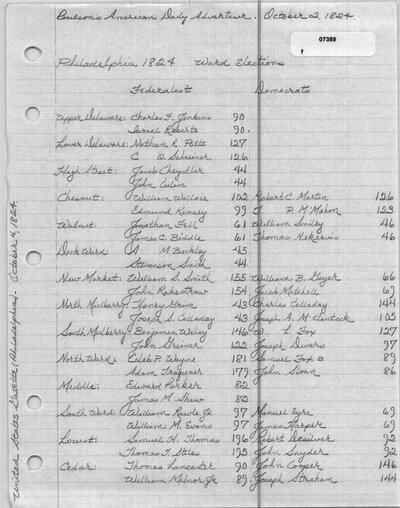 Poulson's American Daily Advertiser. October 2, 1824.
07389
Philadelphia 1824 Ward Elections
Federalist Democrats
Upper Delaware: Charles F. Jenkins 90
Israel Roberts 90.
Lower Delaware: Nathan R. Potts 127
C D. Schreiner 126
High Street: Jacob Cheystler 44
John Culin 44
Chesnut: William Wallace 102 Robert C. Martin 126
Edmund Kinsey 99 T. P. McMahon 123
Walnut: Jonathan Fell 61 William Smiley 46
James C. Biddle 61 Thomas McKervis 46
Dock Ward: A M. Buckley 45
Stevenson Smith 44
New Market: William S. Smith 155 William B. Geyer 66
John Rakestraw 154 Jacob Mitchell 69
North Mulberry: Henry Grim 43 Charles Colladay 144
Joseph S. Colladay 43 Joseph A. McClintock 105
South Mulberry: Benjamin Wiley 146 W. L. Fox 127
John Steiner 122 Joseph Divers 97
North Ward: Caleb P. Wayne 181 Samuel Fox, B 89
Adam Traquair 179 John Sloan 86
Middle: Edward Parker 82
James M. Shaw 82
South Ward: William Rawle Jr. 97 Manuel Eyre 69
William M. Evans 97 James Harper 69
Locust: Samuel H. Thomas 196 Robert Desilver 92
Thomas T. Stiles 195 John Snyder 92
Cedar: Thomas Lancaster 90 John Cooper 146
William Milnor, Jr 89 Joseph Strahan 144
United States Gazette, (Philadelphia). October 4, 1824.